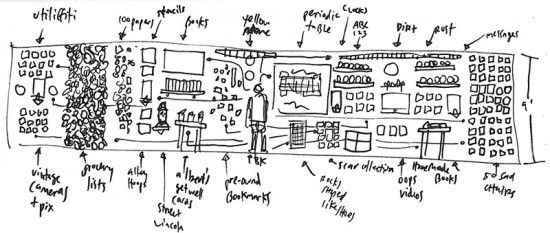 utiliffiti
100 papers
stencils
books
yellow
periodic
table
clocks
ABC
123
DIRT
RUST
messages
9'
vintage
cameras
+ pix
grocery
lists
alley
hoops
street
Lincoln
albert's
get well
cards
pre-owned
bookmarks
BK
rocks
shaped
like
scar collection
oops
videos
Homemade
Books
50 sad
chairs